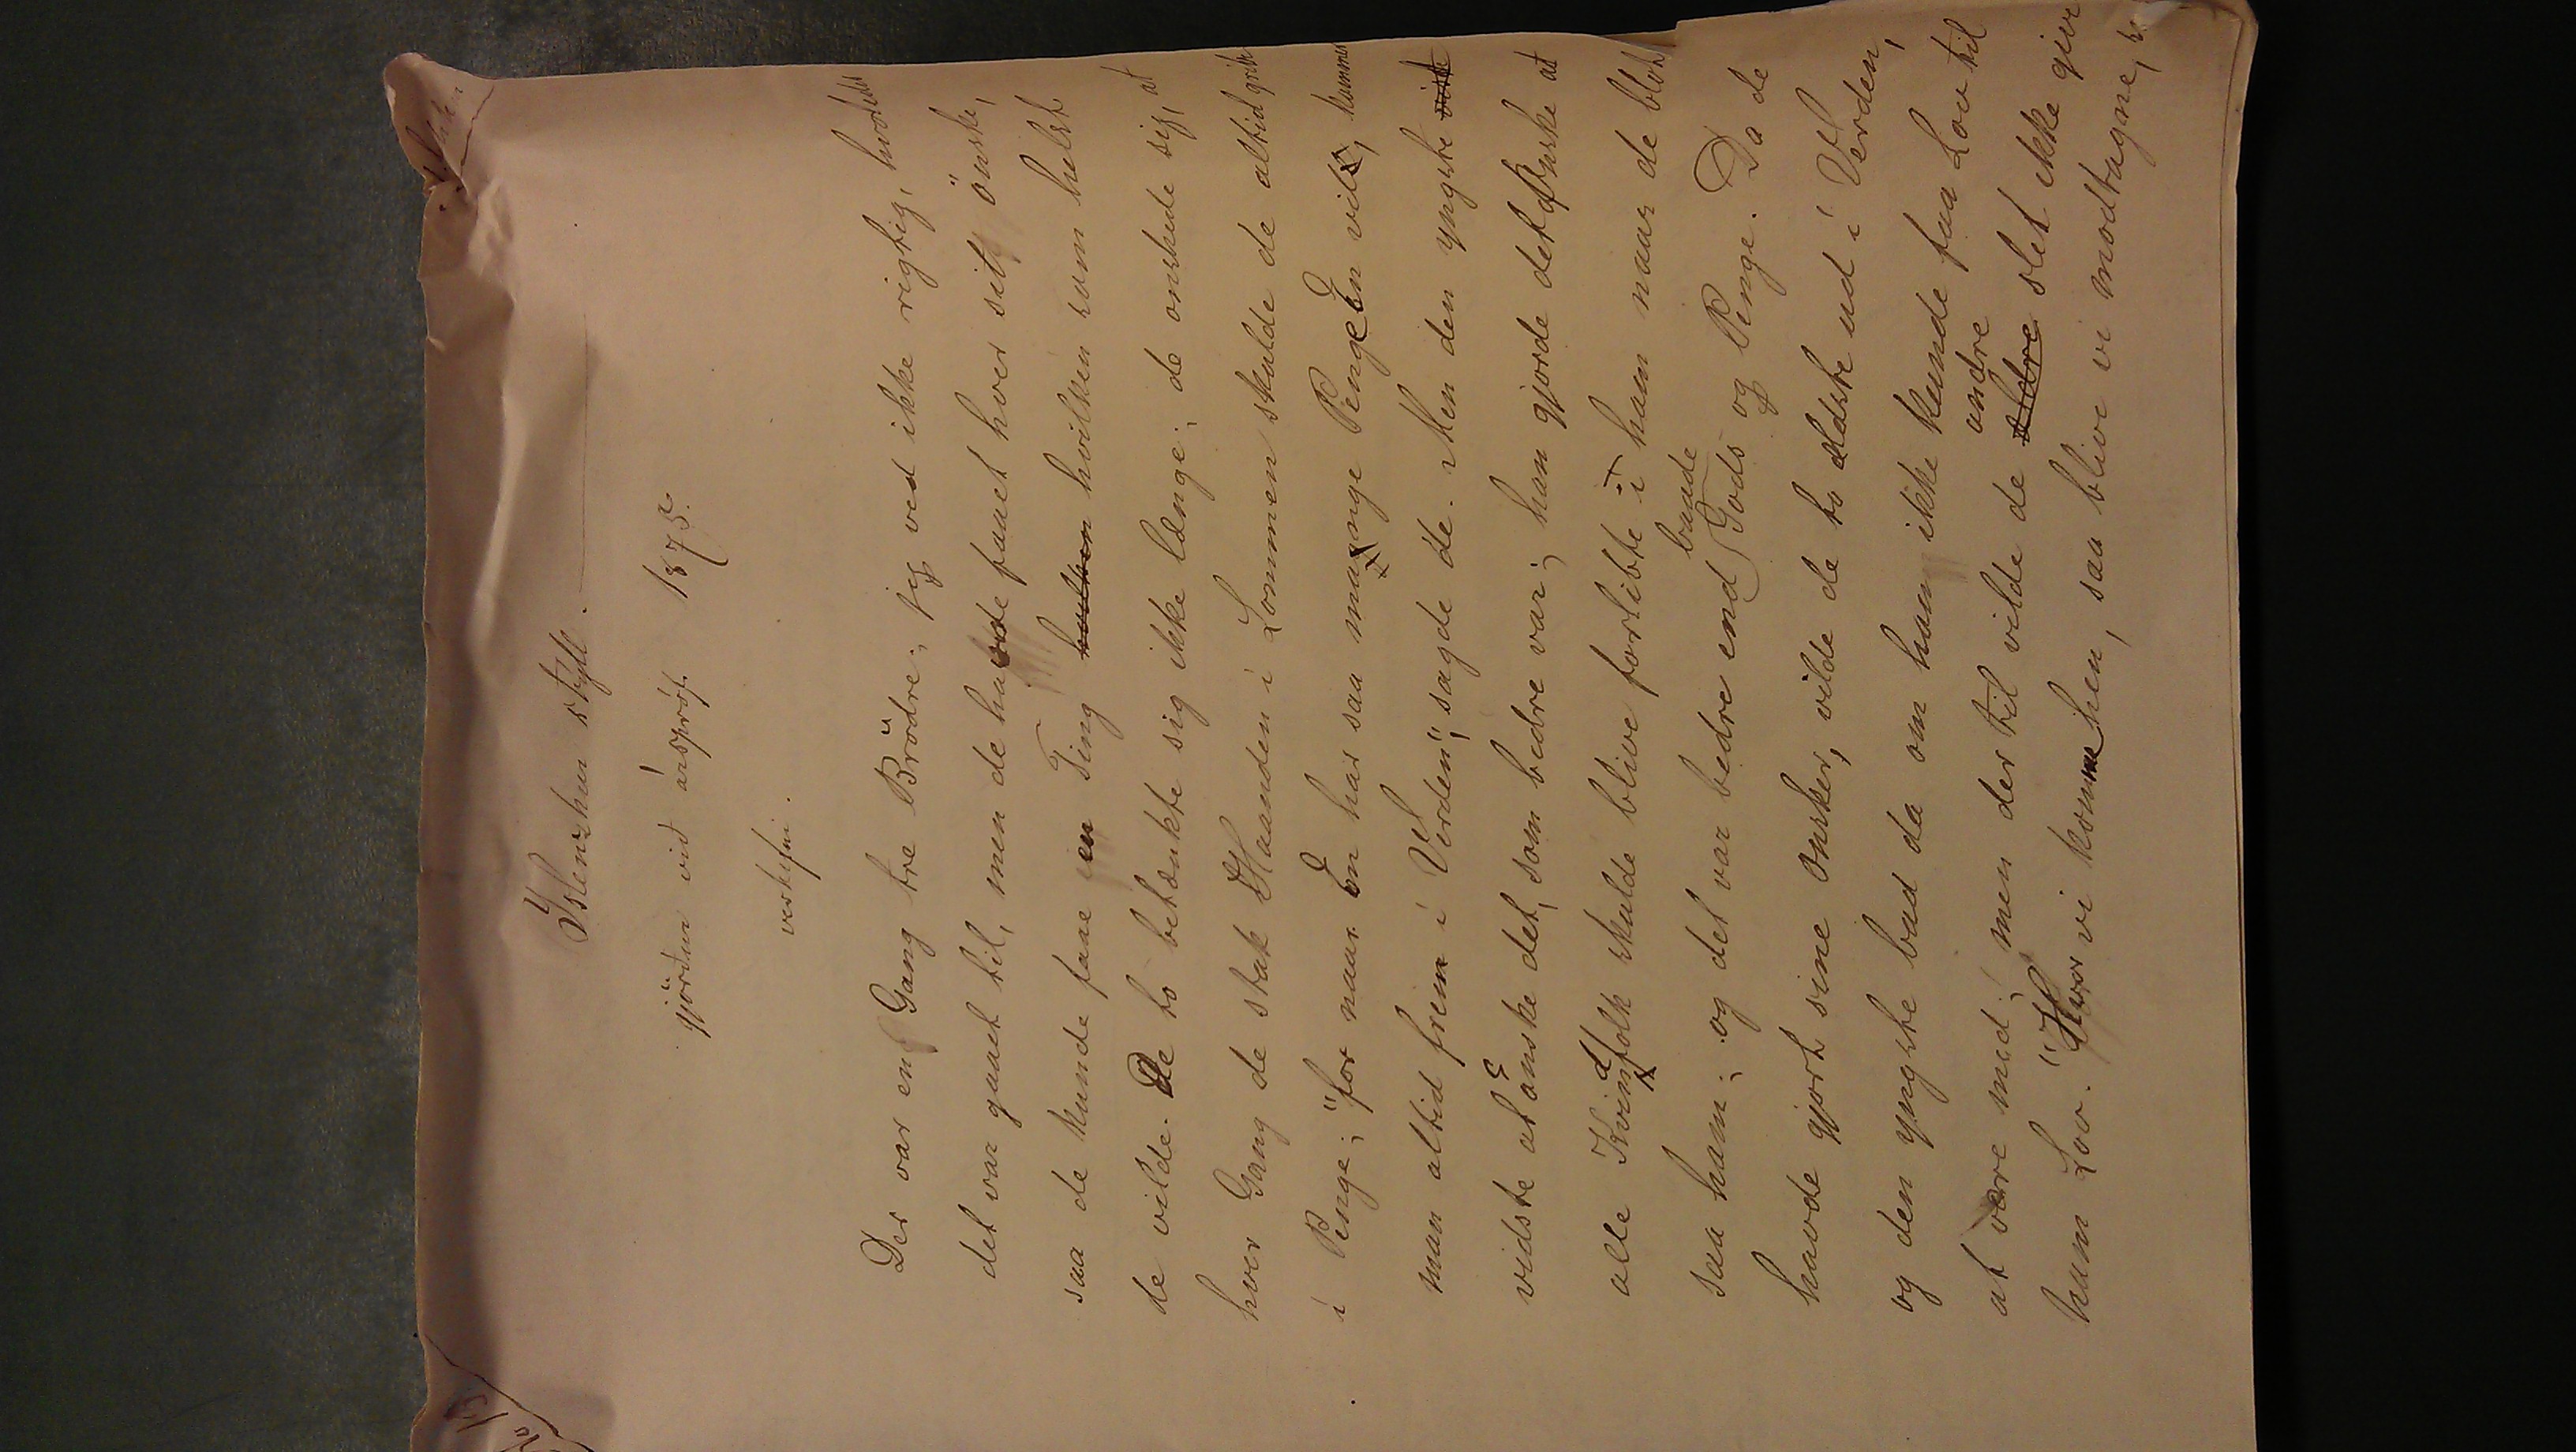 Íslenzkur stýll.
gjörður við ársprof 1875.
verkefni.
Der var en Gang tre Brödre; jeg ved ikke rigtig, hvorledes
det var gaaet til, men de havde faaet hver sit önske,
saa de kunde faae en Ting hvilken som helst
de vilde. De to betænkte sig ikke længe; de onskede sig, at
hver Gang de stak Haanden i Lommen skulde de altid gribe
i Penge; "for naar En har saa mange Penge En vil, kommer
man altid frem i Verden", sagde de. Men den yngste
vidste at onske det, som bedre var; han gjorde det Ønske at
alle Kvindfolk skulde blive forlibte i ham naar de blot
saa ham; og det var bedre end baade Gods og Penge. Da de
havde gjort sine onsker, vilde de to ældste ud i Verden,
og den yngste bad da om han ikke kunde faa Lov til
at være med; men der til vilde de ældre andre slet ikke give
ham Lov. "Hvor vi komme hen, saa blive vi modtagne,